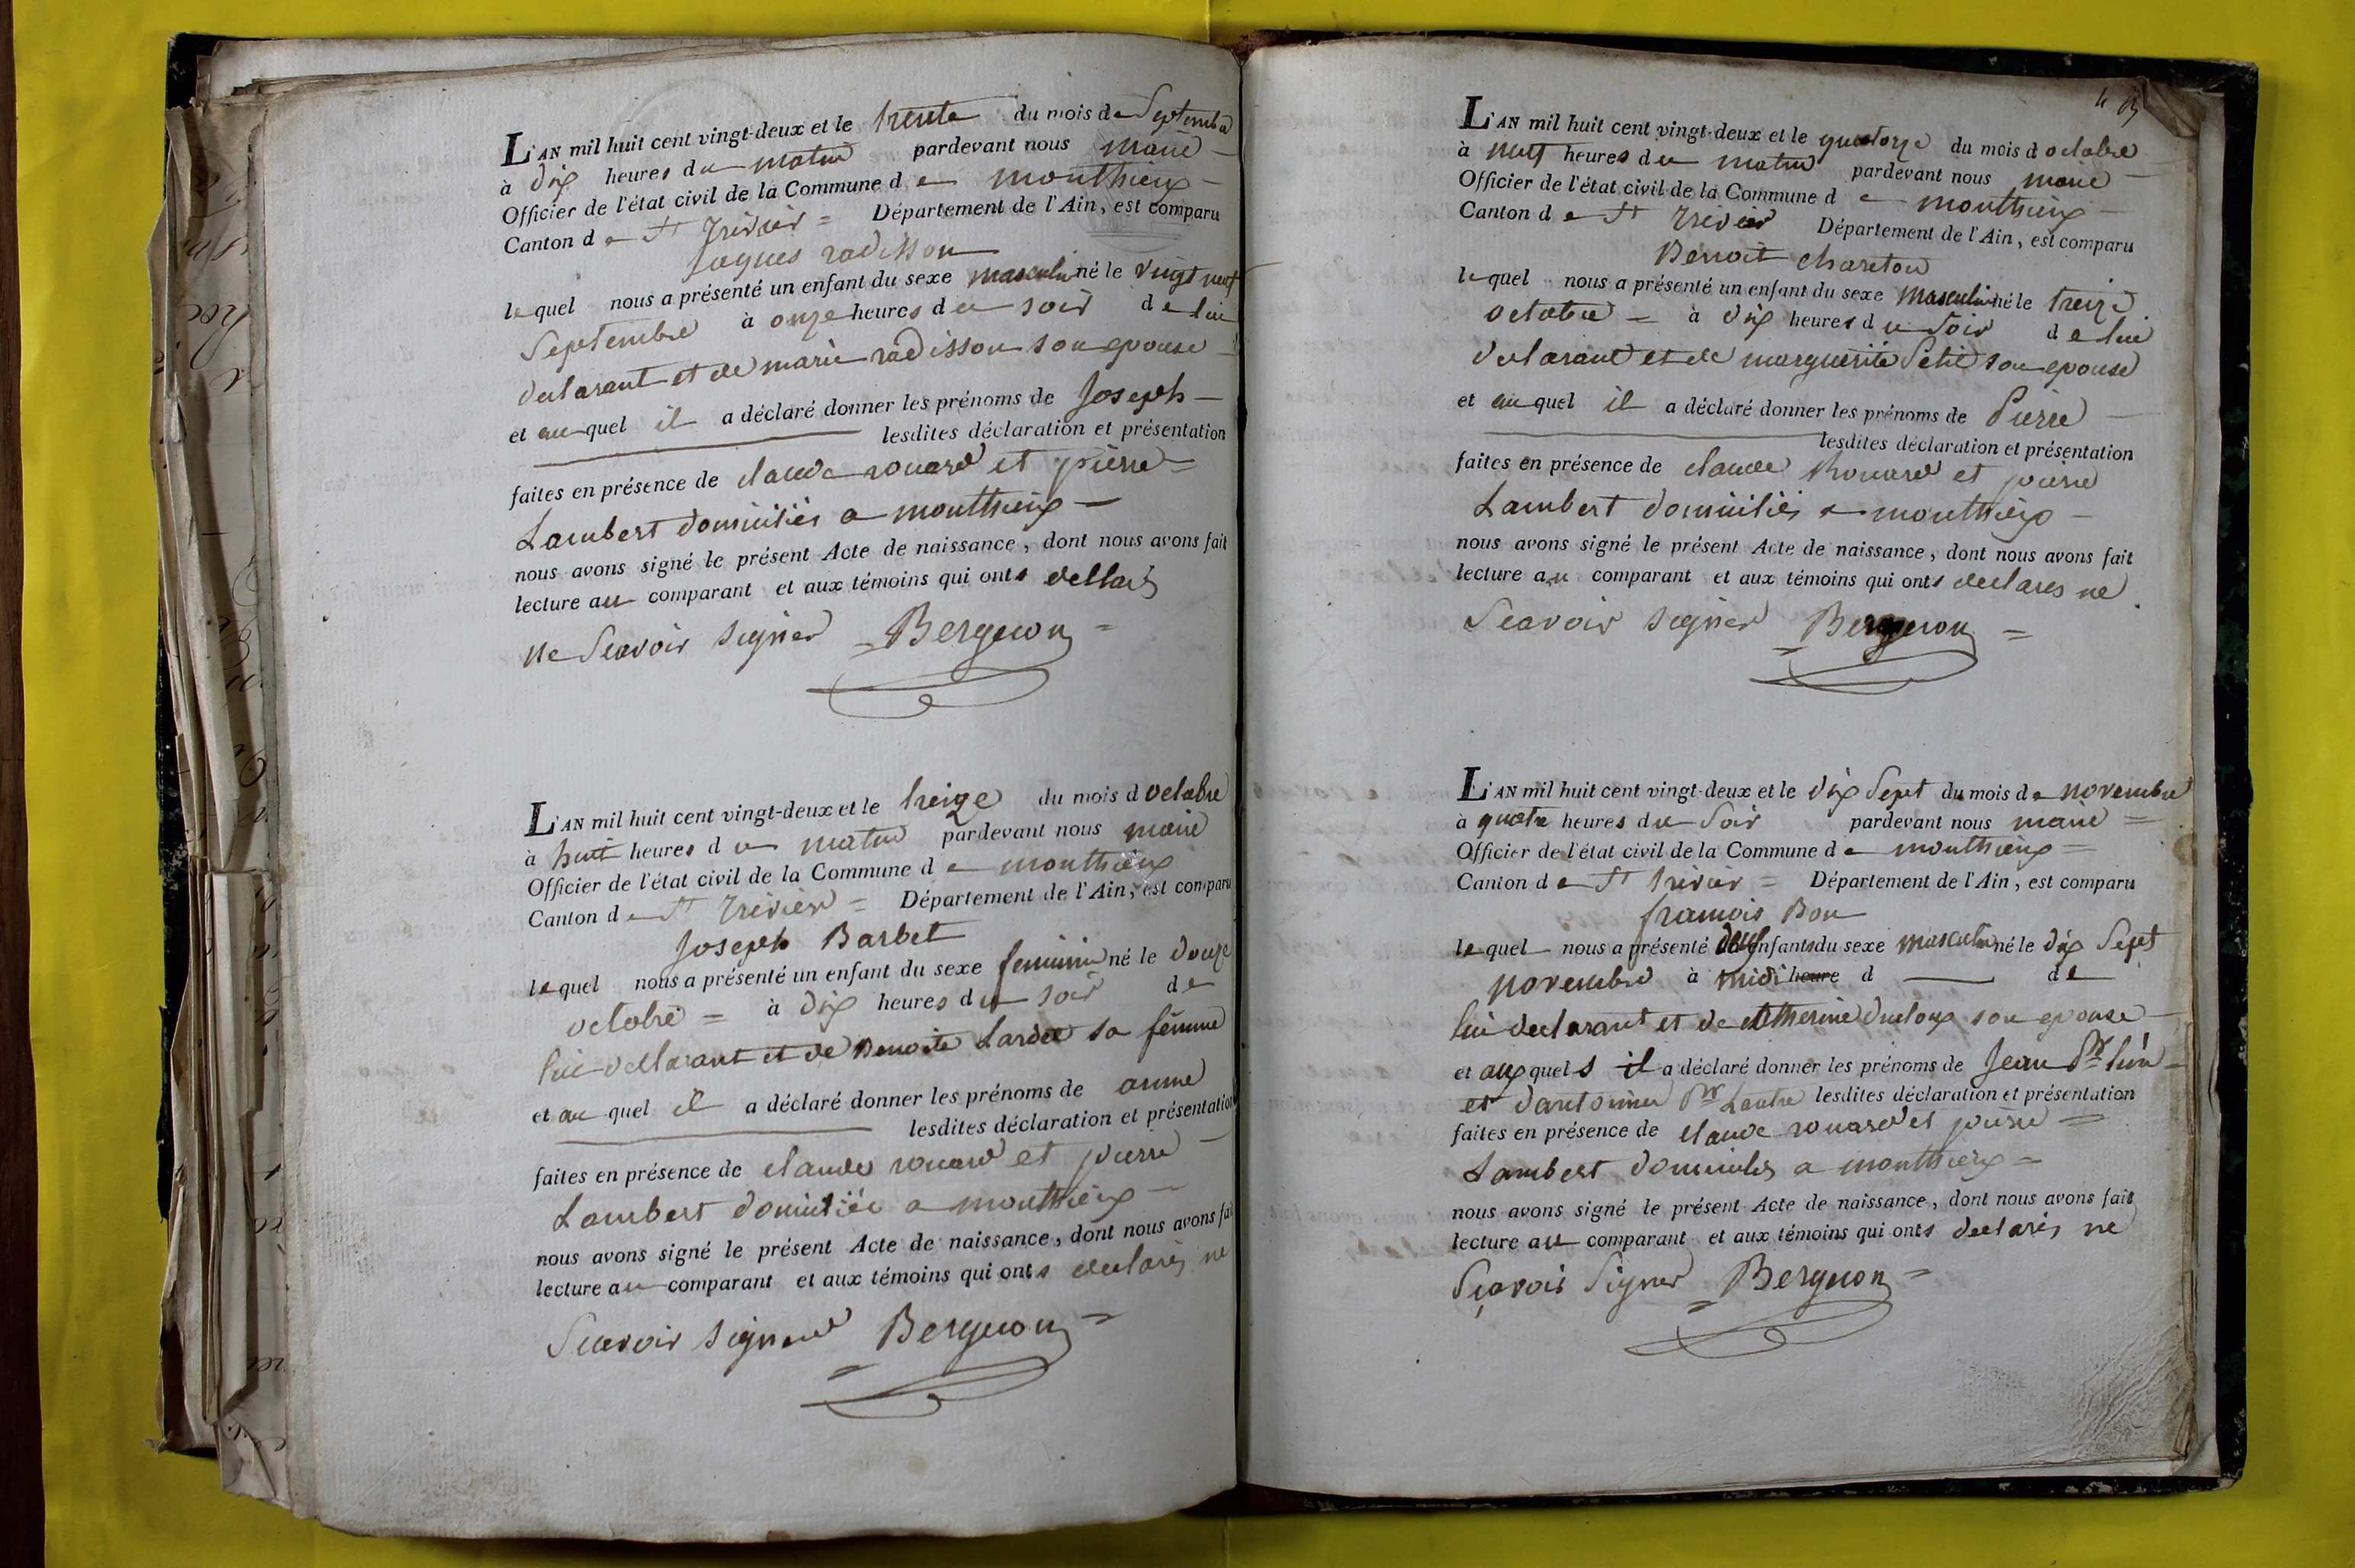 L'AN mil huit cent vingt-deux et le trente du mois de Septembre
à dix heures du matin pardevant nous maire
Officier de l'état civil de la Commune de monthieux
Canton de St trivier = Département de l'Ain, est comparu
Jaques radisson
lequel nous a présenté un enfant du sexe masculin né le vingt neuf
Septembre à onze heures du soir de lui
declarant et de marie radisson son epouse
et auquel il a déclaré donner les prénoms de Joseph
lesdites déclaration et présentation
faites en présence de claude rouard et pierre
Lambert domiciliés a monthieux
nous avons signé le présent Acte de naissance, dont nous avons fait
lecture au comparant et aux témoins qui onts dellarés
ne Scavoir signer = Berguon =
L'AN mil huit cent vingt-deux et le treize du mois d octobre
à huit heures du matin pardevant nous maire
Officier de l'état civil de la Commune de monthieux
Canton de St trivier = Département de l'Ain, est comparu
Joseph Barbet
lequel nous a présenté un enfant du sexe feminin né le douze
octobre = à dix heures du soir de
lui dellarant et de Benoite Lardet sa femme
et auquel il a déclaré donner les prénoms de anne
lesdites déclaration et présentation
faites en présence de claude rouard et pierre
Lambert domiciliés a monthieux
nous avons signé le présent Acte de naissance, dont nous avons fai
lecture au comparant et aux témoins qui onts declarés ne
Scavoir signer = Berguon =
4
L'AN mil huit cent vingt-deux et le quatorze du mois d octobre
à neuf heures du matin pardevant nous maire
Officier de l'état civil de la Commune de monthieux
Canton de St trivier Département de l'Ain, est comparu
Benoit chareton
lequel nous a présenté un enfant du sexe masculin né le treize
octobre = à dix heures du soir de lui
declarant et de marguerite Petit son epouse
et auquel il a déclaré donner les prénoms de Pierre
lesdites déclaration et présentation
faites en présence de claude Rouard et pierre
Lambert domiciliés a monthieux
nous avons signé le présent Acte de naissance, dont nous avons fait
lecture au comparant et aux témoins qui onts declarés ne
Scavoir signer = Berguon =
L'AN mil huit cent vingt-deux et le dix Sept du mois de novembre
à quatre heures du Soir pardevant nous maire =
Officier de l'état civil de la Commune de monthieux =
Canton de St trivier = Département de l'Ain, est comparu
francois Bon
lequel nous a présenté deux enfants du sexe masculin né le dix Sept
novembre à midi heure d de
lui declarant et de catherine Ducloux son epouse
et auxquels il a déclaré donner les prénoms de Jean Pr l'un
et d'antoine Pr Lautre lesdites déclaration et présentation
faites en présence de claude rouard et pierre =
Lambert domiciliés a monthieux =
nous avons signé le présent Acte de naissance, dont nous avons fait
lecture au comparant et aux témoins qui onts declarés ne
Sçavoir Signer = Berguon =